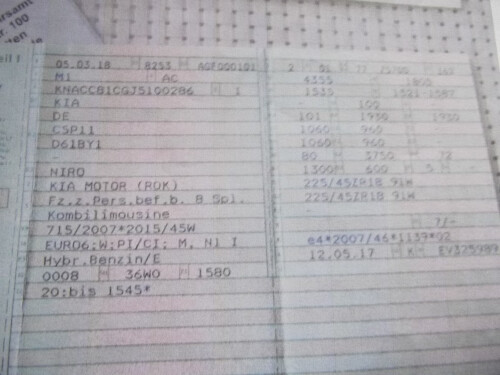 100
05.03.18 8253 AGF000101
M1 AC
KNACCB1CGJ5100286 1
KIA
DE
CSP11
D61BY1
-
NIRO
KIA MOTOR (ROK)
Fz.z.Pers.bef.b. 8 Spl.
Kombilimousine
715/2007*2015/45W
EURO6;W;PI/CI; M, N1 I
Hybr.Benzin/E
0008 36W0 1580
20:bis 1545*
2 01
4355
1535 1521-1587
- 100
101 1930 1930
1060 960 -
1060 960 -
80 3750 72
1300 600 5 -
225/45ZR18 91W
225/45ZR18 91W
-
7/-
e4*2007/46*1139*02
12.05.17 K EV325989